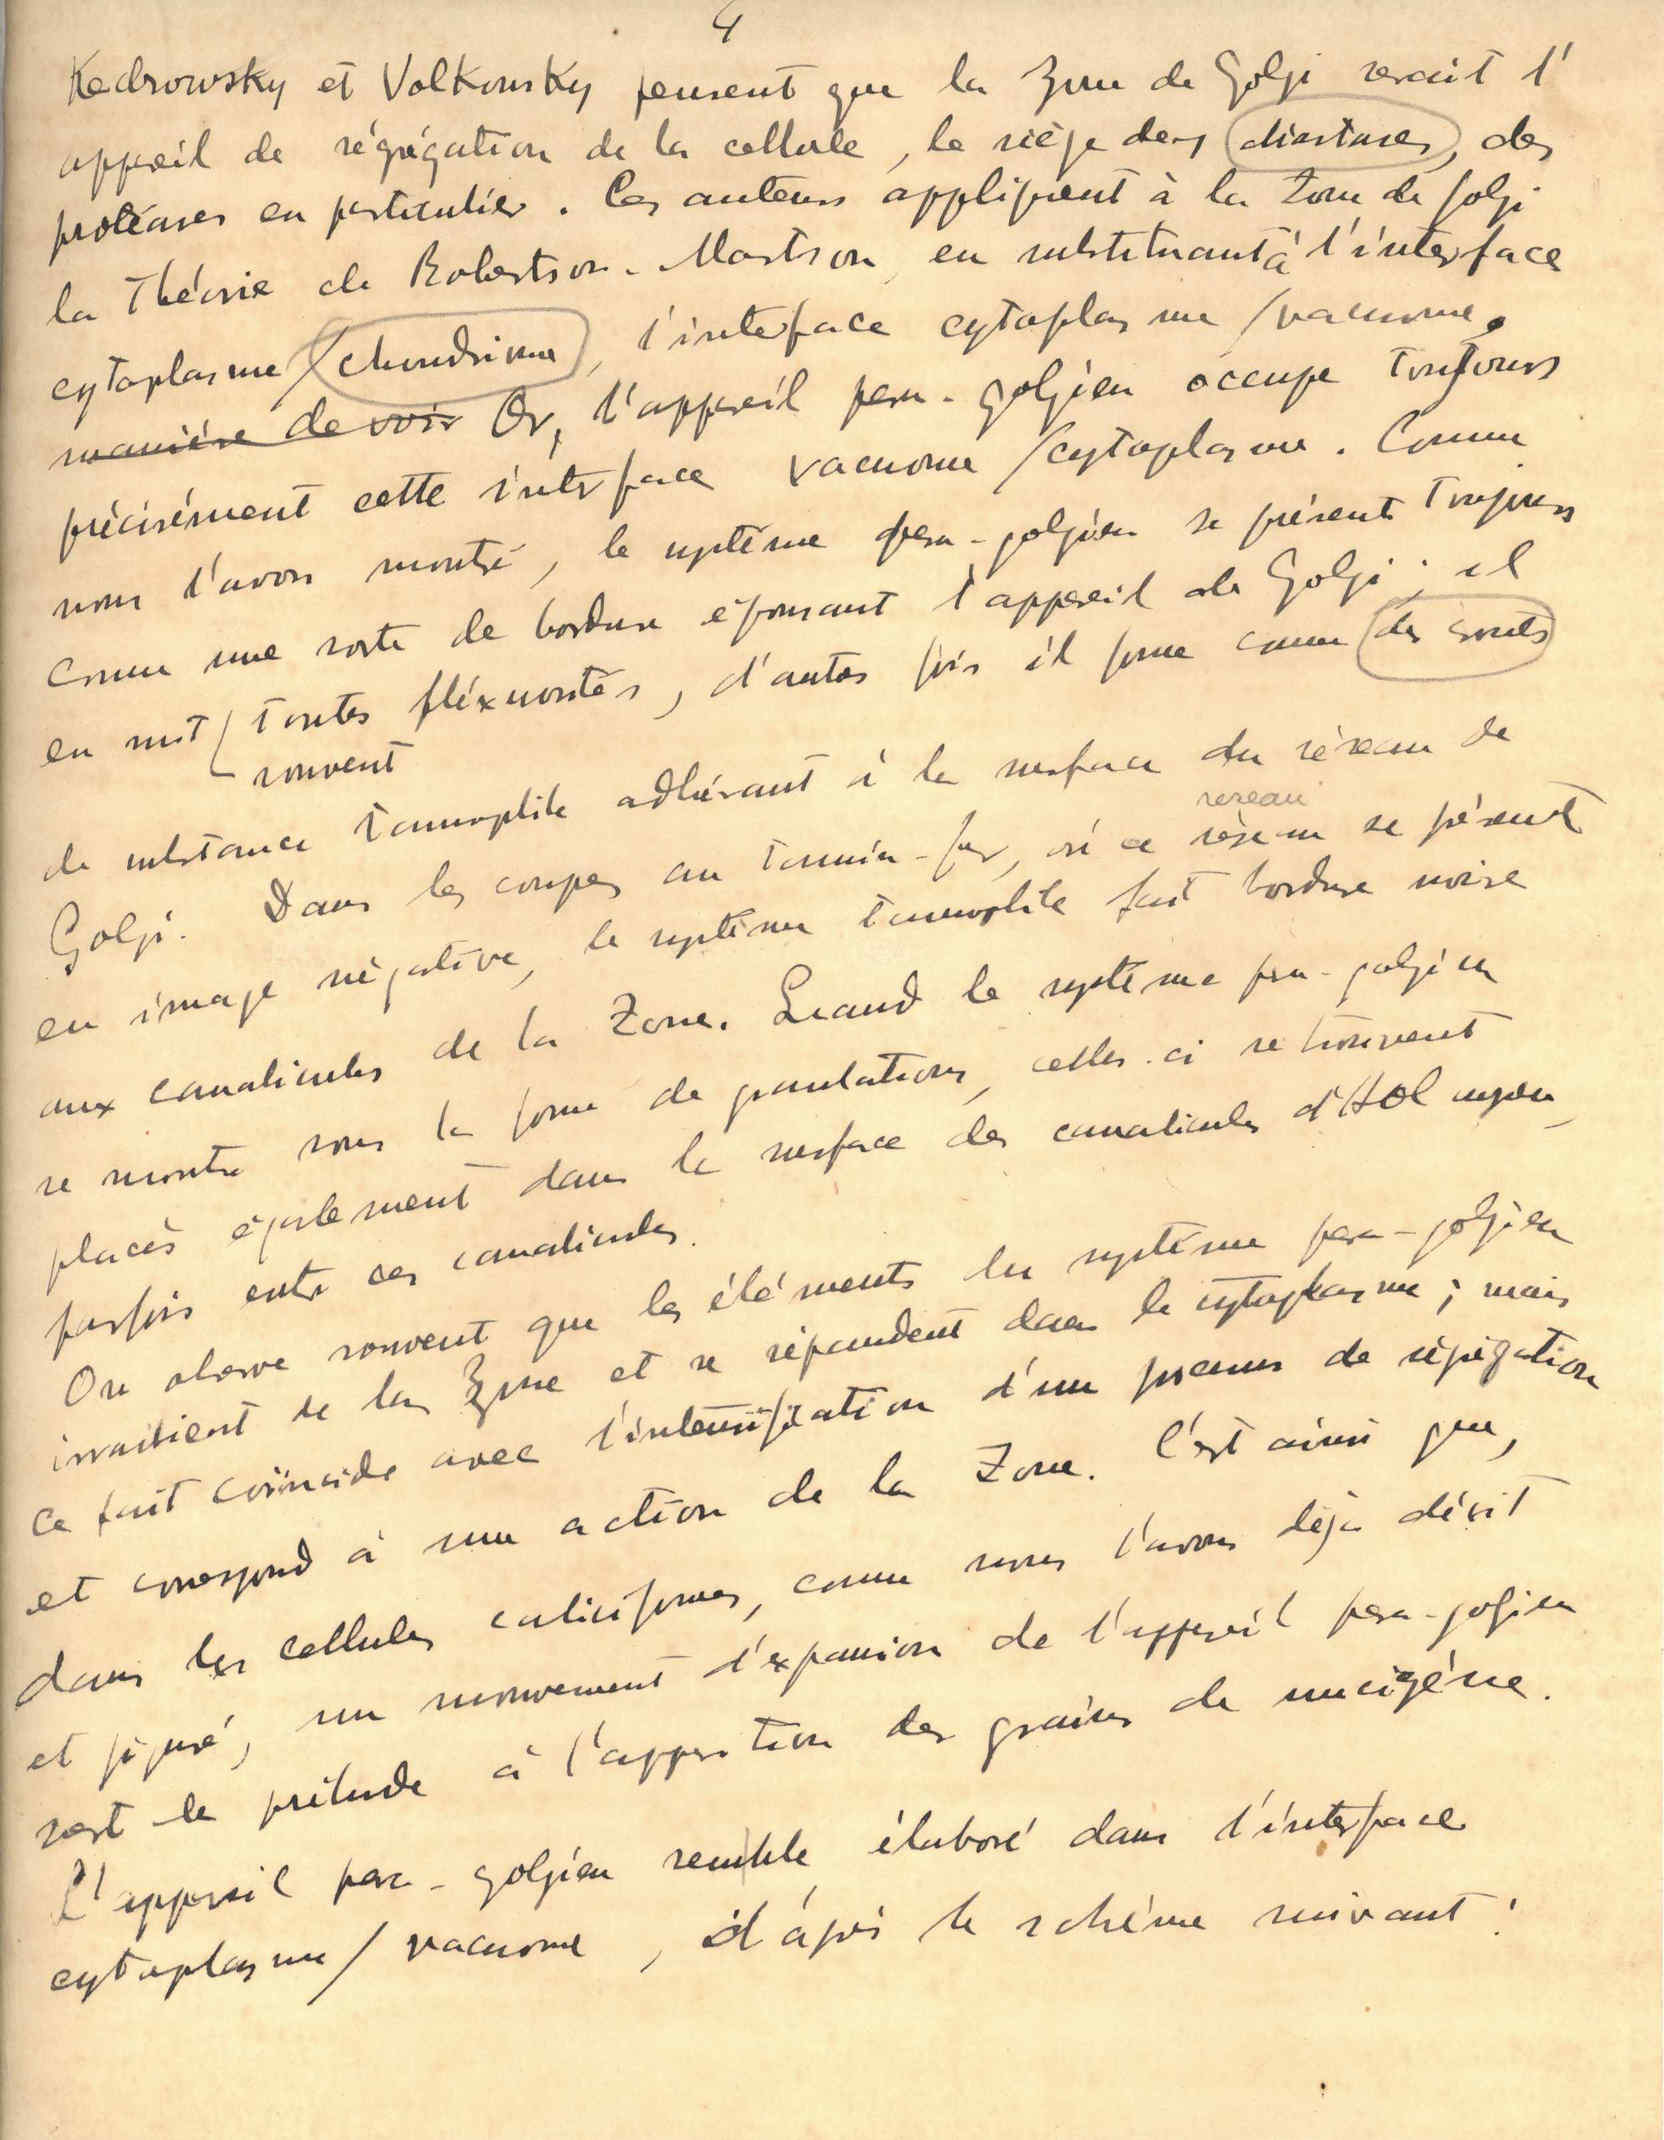 4
Kedrowsky et Volkonsky pensent que la Zone de Golgi serait l'
appareil de ségrégation de la cellule, le siège des diastases, des
protéases en particulier. Ces auteurs appliquent à la Zone de Golgi
la Théorie de Robertson-Marston, en substituant à l'interface
cytoplasme/chondriome, l'interface cytoplasme/vacuome.
manière de voir Or, l'appareil para-golgien occupe toujours
précisément cette interface vacuome/cytoplasme. Comme
nous l'avons montré, le système para-golgien se présente toujours
comme une sorte de bordure épousant l'appareil de Golgi; il
en suit toutes fléxuosités, d'autres fois il forme comme des
souvent
de substance tannophile adhérant à la surface du réseau de
reseau
Golgi. Dans les coupes au tannin-fer, où ce réseau se présente
en image négative, le système tannophile fait bordure noire
aux canalicules de la Zone. Quand le système para-golgien
se montre sous la forme de granulations, celles-ci se trouvent
placés également dans la surface des canalicules d'Holmgren,
parfois entre ces canalicules.
On observe souvent que les éléments du système para-golgien
irradient de la Zone et se répandent dans le cytoplasme; mais
ce fait coïncide avec l'intensification d'un processus de ségrégation
et correspond à une action de la Zone. C'est ainsi que,
dans les cellules caliciformes, comme nous l'avons déjà décrit
et figuré, un mouvement d'expansion de l'appareil para-golgien
sert de prélude à l'apparition des grains de mucigène.
L'appareil para-golgien semble élaboré dans l'interface
cytoplasme/vacuome, d'après le schéma suivant: